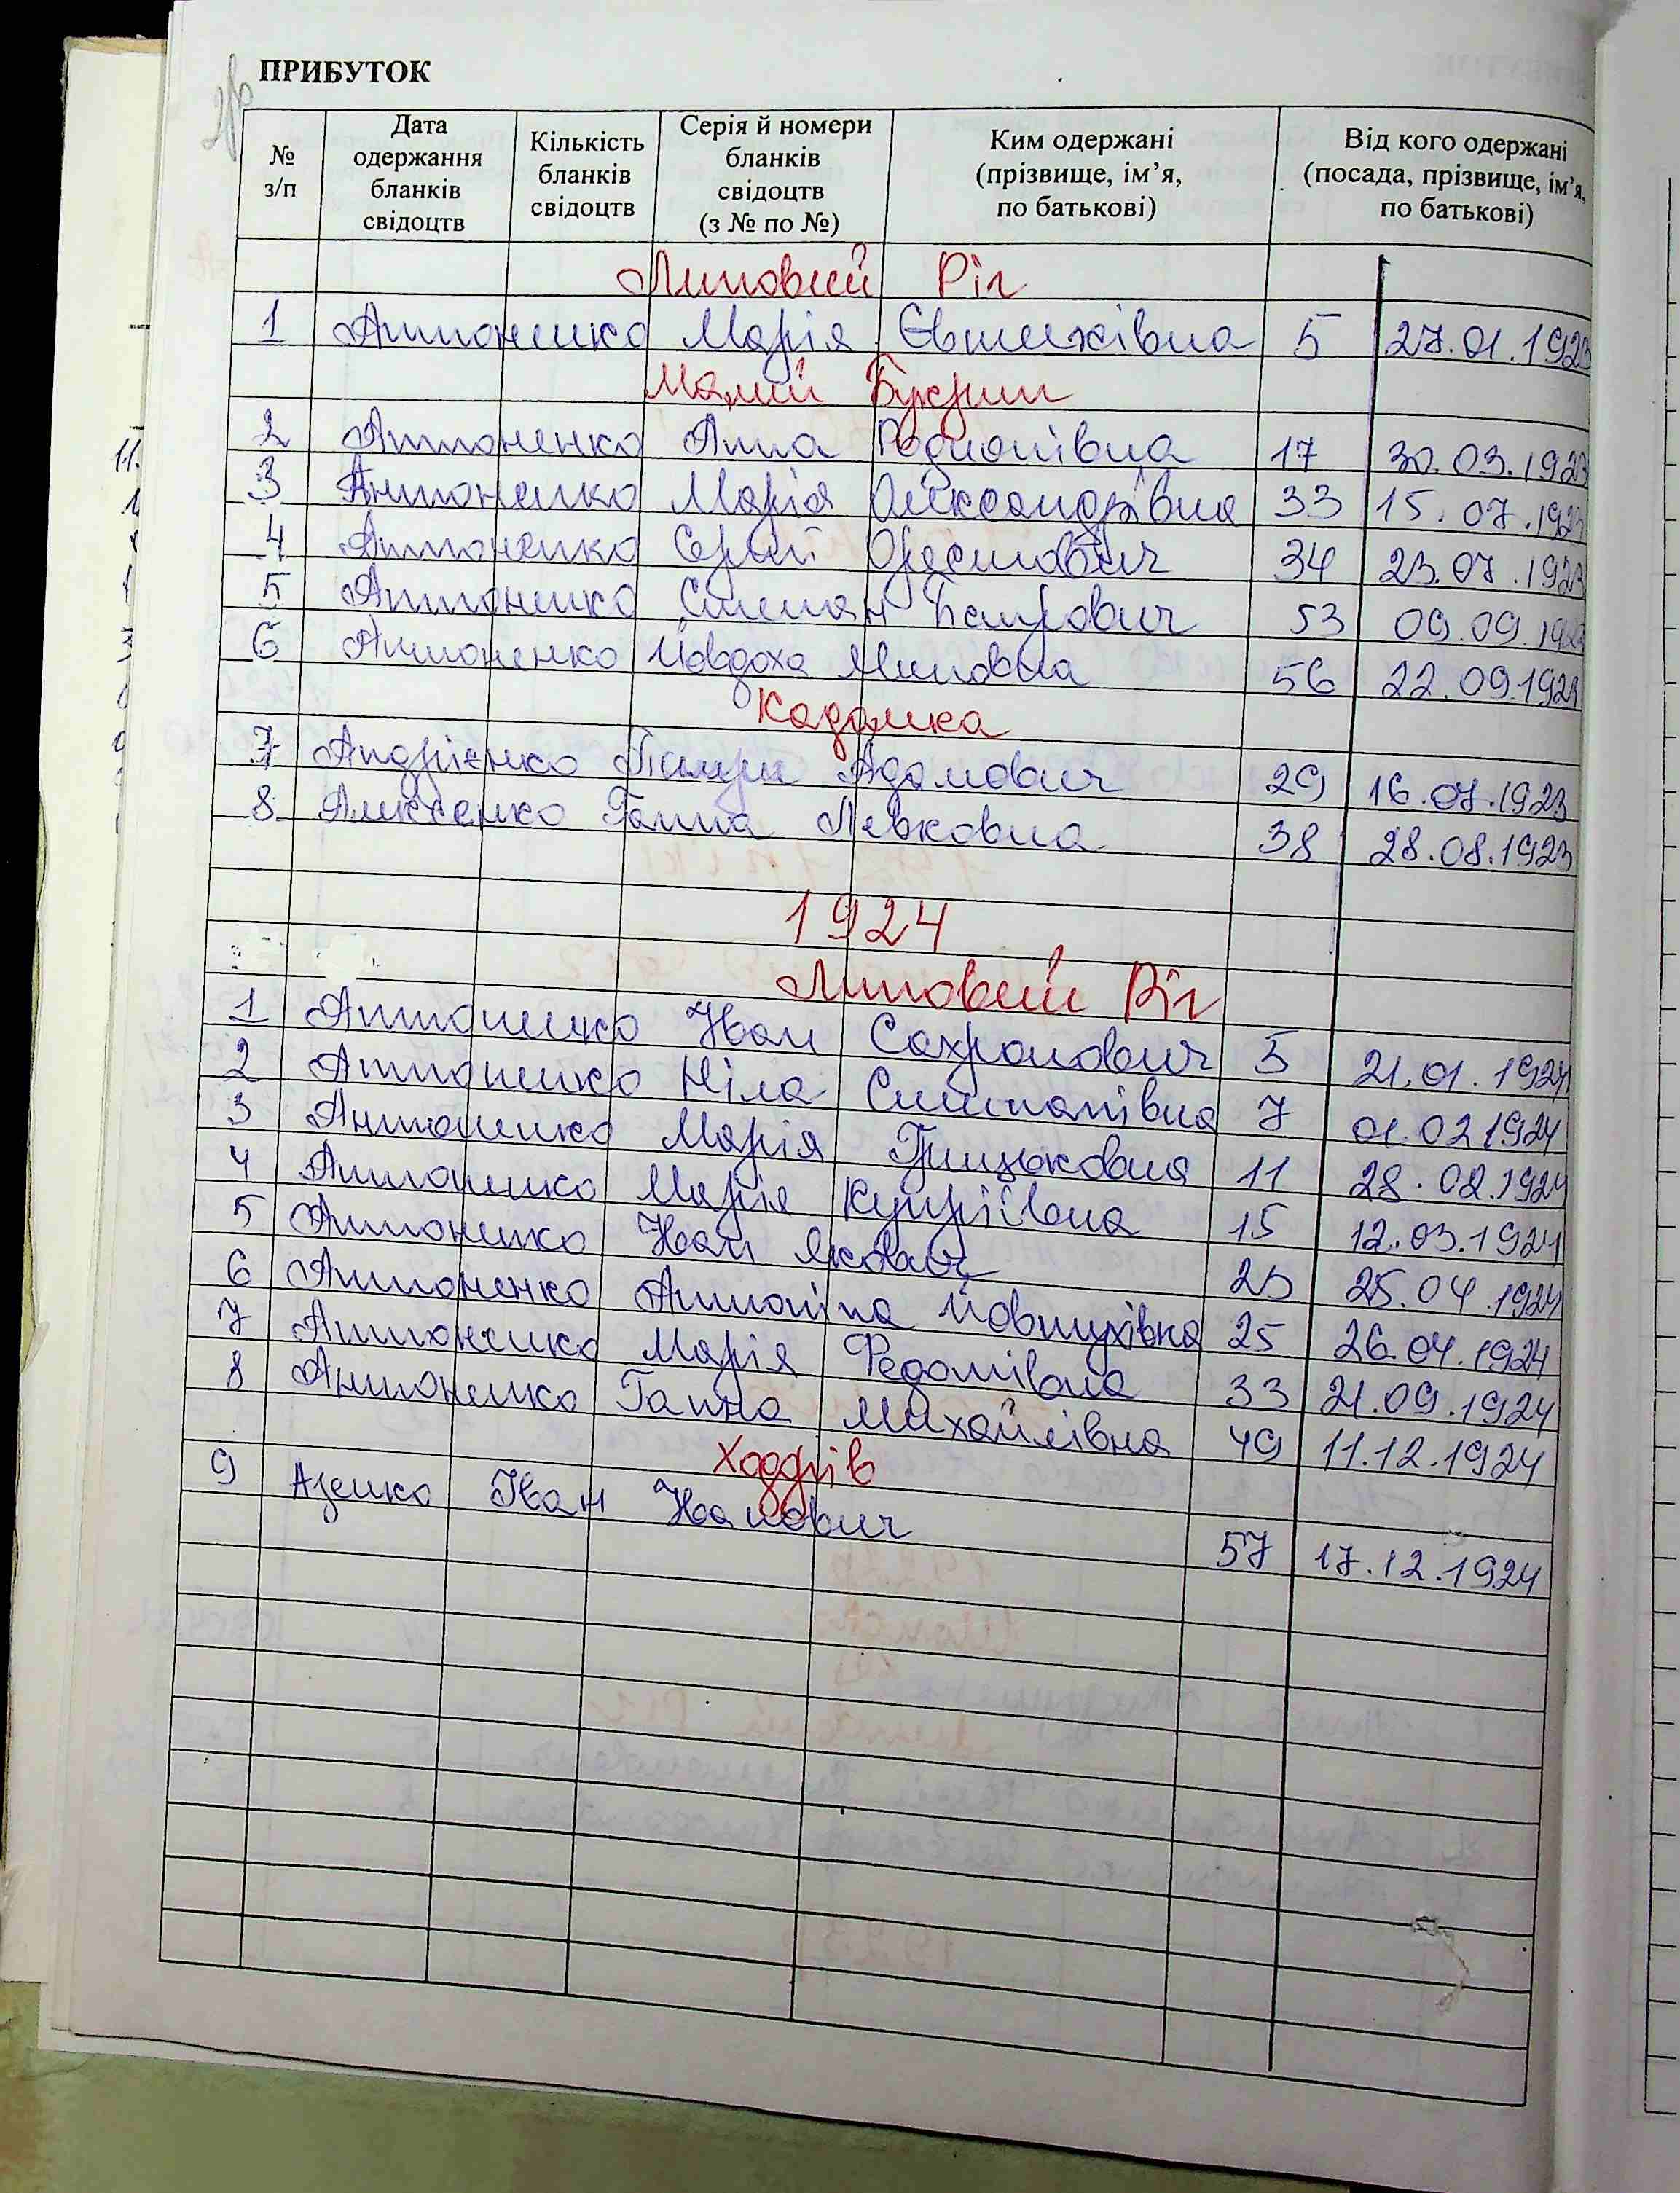 ПРИБУТОК
№ з/п
Дата одержання бланків свідоцтв
Кількість бланків свідоцтв
Серія й номери бланків свідоцтв (з № по №)
Ким одержані (прізвище, ім’я, по батькові)
Від кого одержані (посада, прізвище, ім’я, по батькові)
Липовий Ріг
1 Антоненко Марія Євтихіївна 5 27.01.1923
Малий Букрин
2 Антоненко Анна Родионівна 17 30.03.1923
3 Антоненко Марія Олександрівна 33 15.07.1923
4 Антоненко Сергій Орестович 34 23.07.1923
5 Антоненко Степан Петрович 53 09.09.1923
6 Антоненко Йовдоха Миновна 56 22.09.1923
Кадомка
7 Андрієнко Петри Адамович 29 16.07.1923
8 Алексенко Ганна Левковна 38 28.08.1923
1924
Липовий Ріг
1 Антоненко Иван Сахронович 5 21.01.1924
2 Антоненко Ніла Степанівна 7 01.02.1924
3 Антоненко Марія Грицьковна 11 28.02.1924
4 Антоненко Марія Купріївна 15 12.03.1924
5 Антоненко Иван Якович 23 25.04.1924
6 Антоненко Антоніна Йовтухівна 25 26.04.1924
7 Антоненко Марія Федотівна 33 21.09.1924
8 Антоненко Ганна Михайлівна 49 11.12.1924
Ходорів
9 Азенко Іван Иванович 57 17.12.1924